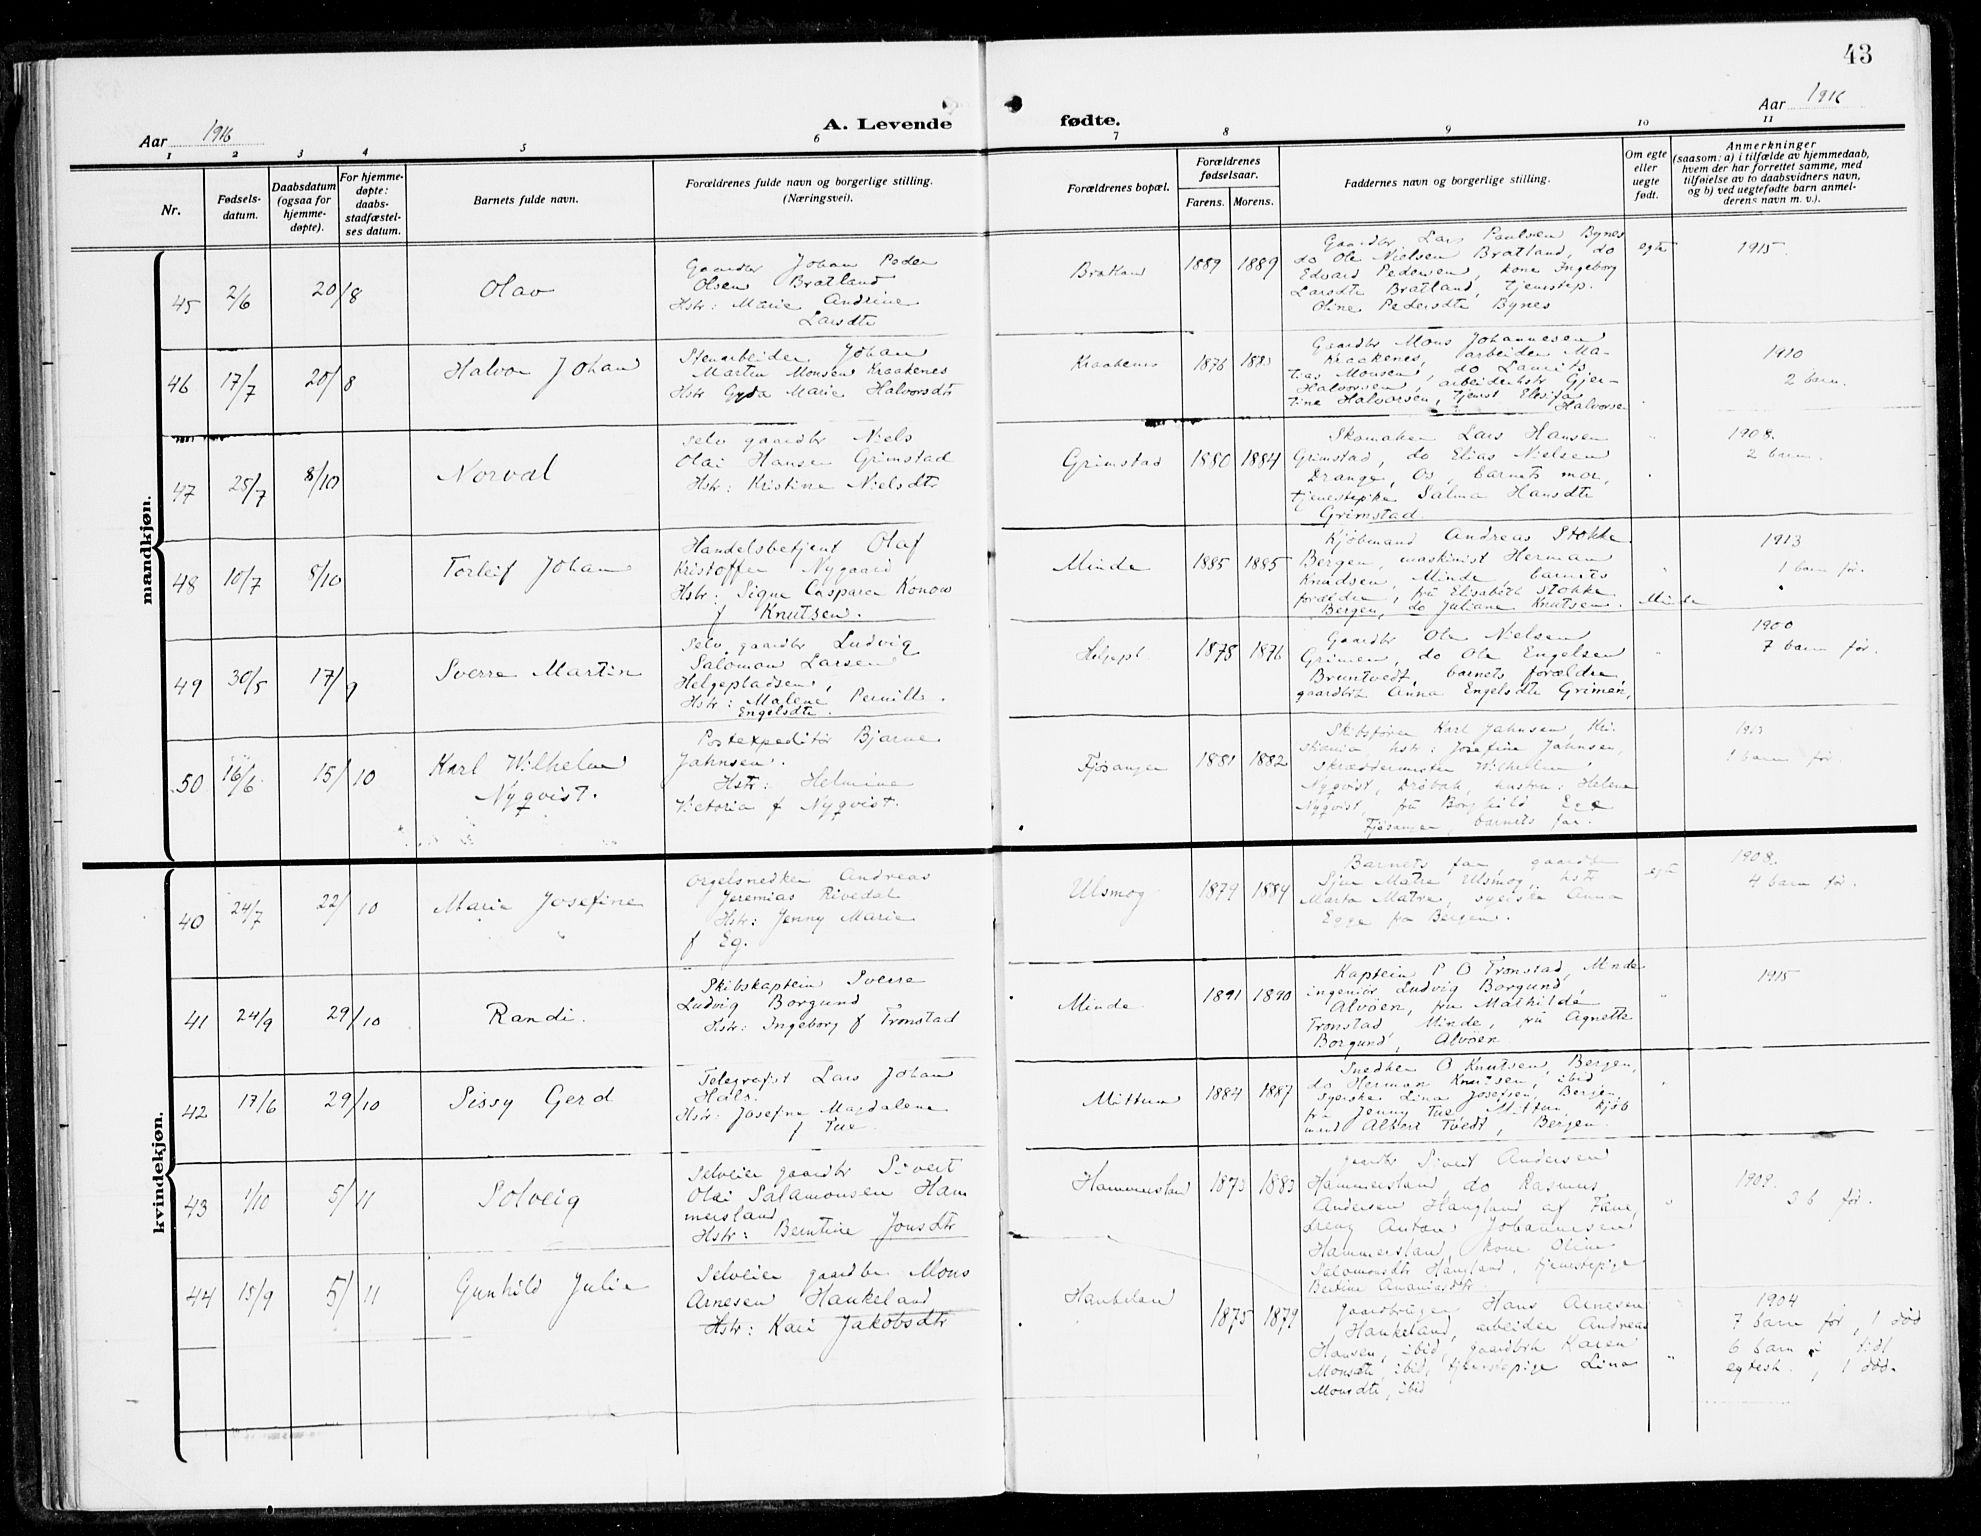 43
Aar 1916
A. Levende fødte.
Aar 1916
1 2 3 4 5 6 7 8 9 10 11
Nr.
Fødsels-
datum.
Daabsdatum
(ogsaa for
hjemme-
døpte).
For hjemme-
døpte:
daabs-
stadfæstel-
ses datum.
Barnets fulde navn.
Forældrenes fulde navn og borgerlige stilling.
(Næringsvei).
Forældrenes bopæl.
Forældrenes
fødselsaar.
Farens. Morens.
Faddernes navn og borgerlige stilling.
Om egte
eller
uegte
født.
Anmerkninger
(saasom: a) i tilfælde av hjemmedaab,
hvem der har forrettet samme, med
tilføielse av to daabsvidners navn,
og b) ved uegtefødte barn anmel-
derens navn m. v.).
mandkjøn.
45 2/6 20/8 Olav
Gaardbr Johan Peder
Olsen Bratland
Hstr: Marie Andrine
Larsdtr
Bratland 1889 1889
Gaardbr Lars Paulsen Bynes
do Ole Nielsen Bratland, do
Edvard Pedersen, kone Ingeborg
Larsdtr Bratland, tjenestep.
Oline Pedersdtr Bynes
egte 1915
46 17/7 20/8 Halvor Johan
Stenarbeider Johan
Martin Monsen Kraakenes
Hstr Gyda Marie Halvorsdtr
Kraakenes 1876
Gaardbr Mons Johannesen
Kraakenes, arbeider Ma-
tias Monsen, do Laurits
Halvorsen, arbeiderhstr Gjer-
tine Halvorsen, tjenest Elesifa
Halvorsen
1910
2 barn.
47 25/7 8/10 Norval
Selv gaardbr Niels
Olai Hansen Grimstad
Hstr: Kristine Nielsdtr
Grimstad 1880 1884
Skomaker Lars Hansen
Grimstad, do Elias Nielsen
Drange, Os, barnets mor,
tjenestepike Salma Hansdtr
Grimstad.
" 1908.
2 barn.
48 10/7 8/10 Torleif Johan
Handelsbetjent Olaf
Kristoffer Nygaard
Hstr: Signe Caspara Konow
f Knutsen.
Minde 1885 1885
Kjøbmand Andreas Stokke
Bergen, maskinist Herman
Knudsen, Minde, barnets
forældre, fru Elisabeth Stokke
Bergen, do Juliane Knutsen. Minde
" 1913
1 barn før.
49 30/5 17/9 Sverre Martin
Selv. gaardbr Ludvig
Salomon Larsen
Helgepladsen,
Hstr: Malene Pernille
Engelsdtr.
Helgepl 1878 1876
Gaardbr Ole Nielsen
Grimen, do Ole Engelsen
Bruntvedt, barnets forældre,
gaardbr Anna Engelsdtr Grimen,
" 1900
7 barn før.
50 16/6 15/10 Karl Wilhelm
Nyqvist.
Postexpeditør Bjarne
Jahnsen.
Hstr: Helmine
Victoria f Nyqvist.
Fjøsanger 1881 1882
Skibsfører Karl Jahnsen, Kri-
stiania, hstr: Josefine Jahnsen,
skræddermester Wilhelm
Nyqvist, Drøbak, hustru: Helene
Nyqvist, fru Borghild Ege
Fjøsanger, barnets far.
1913
1 barn før.
kvindekjøn.
40 24/7 22/10 Marie Josefine
Orgelsnedker Andreas
Jeremias Rivedal
Hstr: Jenny Marie
f Eg.
Ulsmog 1879 1889
Barnets far, gaardbr
Sjur Matre Ulsmog, hstr
Marta Matre, syerske Anna
Egge fra Bergen.
egte 1908.
4 barn før.
41 24/9 29/10 Randi.
Skibskaptein Sverre
Ludvig Borgund
Hstr: Ingeborg f Tronstad
Minde 1891 1890
Kaptein P O Tronstad, Minde
ingeniør Ludvig Borgund,
Alvøen, fru Mathilde
Tronstad, Minde, fru Agnette
Borgund, Alvøen
" 1915
42 17/6 29/10 Sissy Gerd
Telegrafist Lars Johan
Hals.
Hstr: Josefine Magdalene
f Tue.
Mittun 1884 1887
Snedker O Knutsen, Bergen,
do Herman Knutsen, ibid,
syerske Lina Josefsen, Bergen,
fru Jenny Tue, Mittun, kjøb
mand Albert Tvedt, Bergen.
43 1/10 5/11 Solveig
Selveier gaardbr Sivert
Olai Salamonsen Ham
mersland
Hstr: Berntine Jonsdtr
Hammersland 1873 1883
gaardbr Sivert Andersen
Hammersland do Rasmus
Andersen Haugland af Fane,
dreng Anton Johannesen
Hammersland, kone Oline
Salomonsdtr Haugland, tjenestepige
Bertine Ananiasdtr
" 1909.
3 b før.
44 15/9 5/11 Gunhild Julie
Selveier gaardbr Mons
Arnesen Haukeland
Hstr: Kari Jakobsdtr
Haukeland 1875 1879
gaardbruger Hans Arnesen
Haukeland, arbeider Andreas
Hansen, ibid, gaardbrk Karen
Monsdtr, ibid, tjenestepige Lina
Monsdtr, ibid
" 1904
7 barn før, 1 død
6 barn i sidst
egtesk., 1 død.